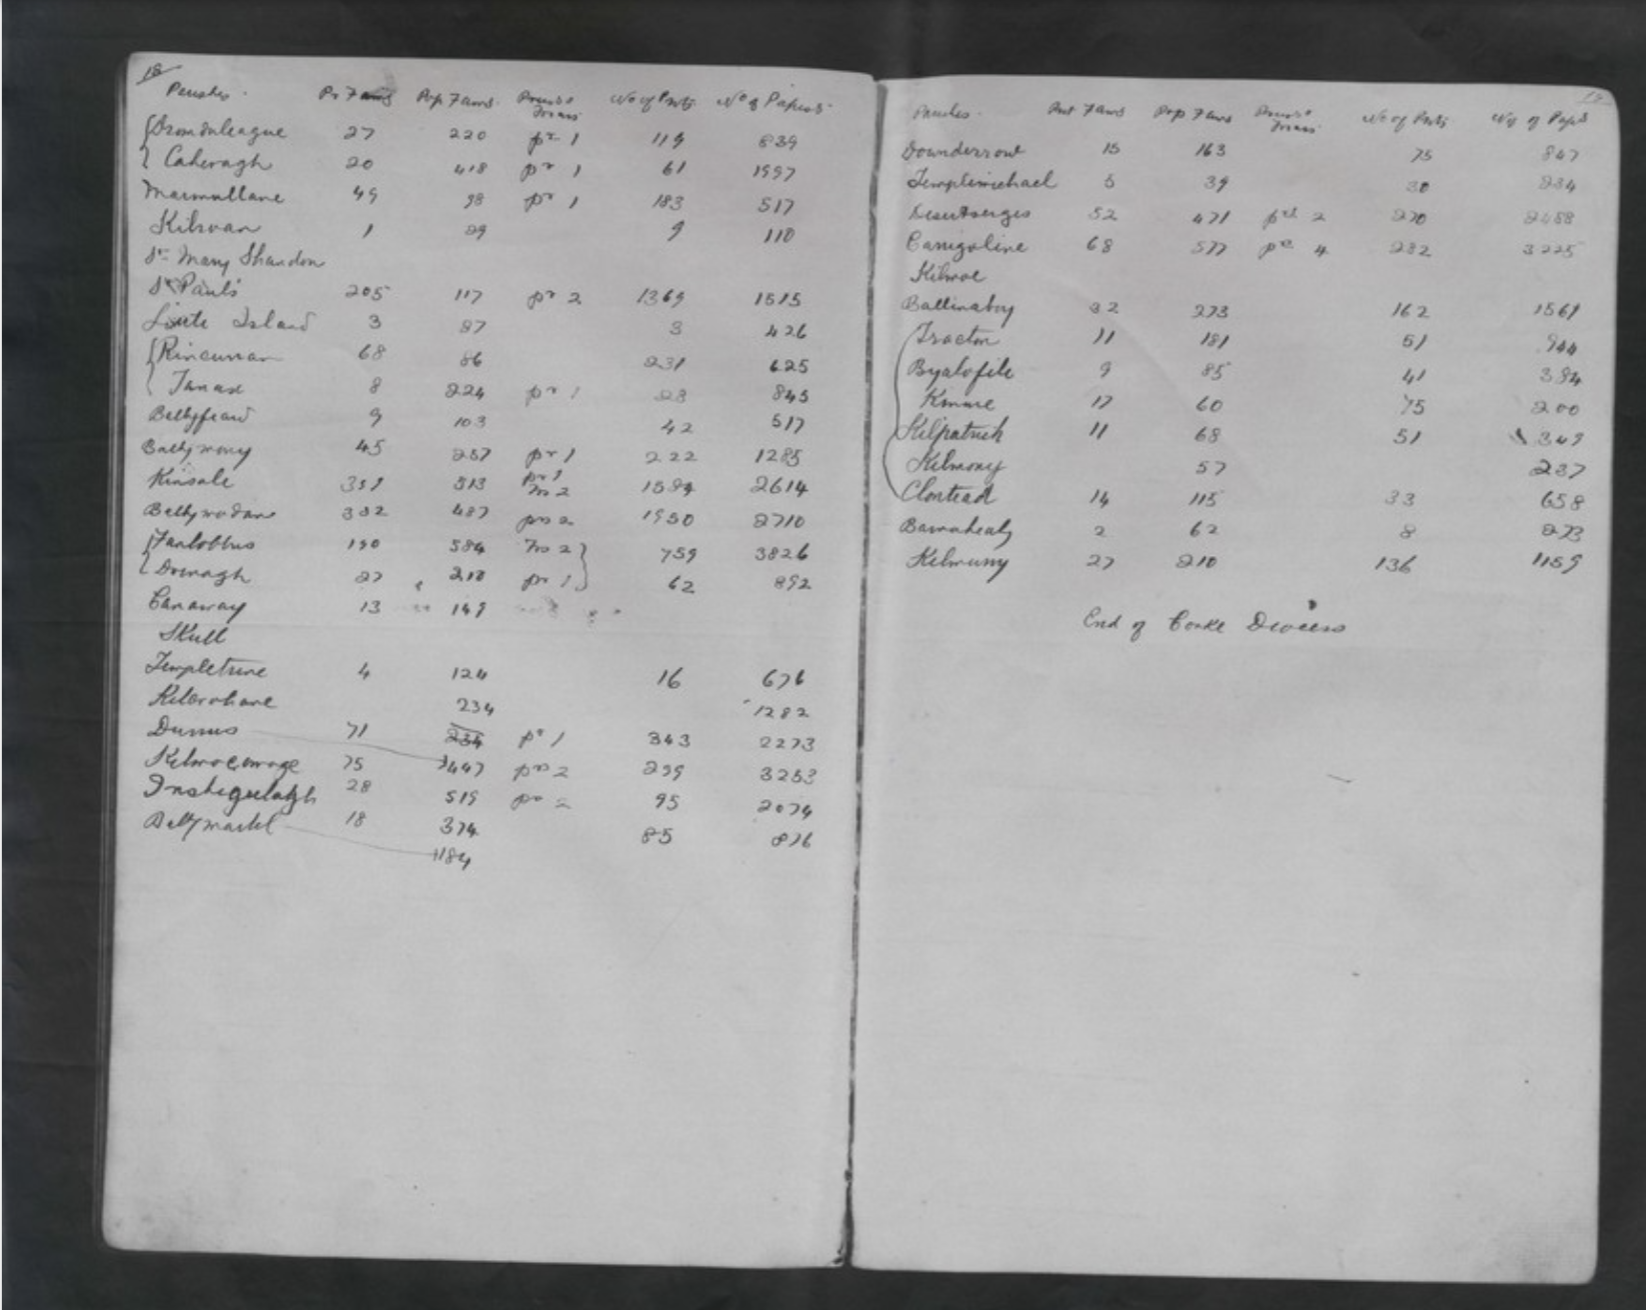 16
Parishes. Pr Fams Pop Fams. Priests & Friars No of Prots No of Papists.
Dromdaleague 27 220 pr 1 119 839
Caheragh 20 418 pr 1 61 1997
Marmullane 49 98 pr 1 183 517
Kilroan 1 29 9 110
St Mary Shandon
St Pauls 205 117 pr 2 1369 1515
Little Island 3 87 3 426
Rincurran 68 86 231 625
Tanax 8 224 pr 1 28 845
Ballyfeard 9 103 42 517
Ballymony 45 257 pr 1 222 1285
Kinsale 351 513 pr 1 1584 2614
Frs 2
Ballymodan 332 487 prs 2 1950 2710
Fanlobbus 190 584 Frs 2 759 3826
Drinagh 27 210 pr 1 62 892
Canaway 13 149
Skull
Templetrine 4 124 16 676
Kilcrohane 234 1282
Durrus 71 234 pr 1 343 2273
Kilmocomoge 75 447 prs 2 299 3253
Inshegeelagh 28 519 pr 2 95 2074
Ballymartel 18 374 85 876
184
17
Parishes. Prot Fams Pop Fams Priests & Friars No of Prots No of Paps
Dounderrow 15 163 75 847
Templemichael 5 39 30 234
Desertserges 52 471 pst 2 270 2488
Carrigoline 68 577 pr 4 282 3225
Kilmoe
Ballinaboy 32 273 162 1561
Tracton 11 181 51 944
Byalofile 9 85 41 384
Kinure 17 60 75 200
Kilpatrick 11 68 51 349
Kilmony 57 237
Clontead 14 115 33 658
Barnahealy 2 62 8 273
Kilmurry 27 210 136 1159
End of Corke Diocess